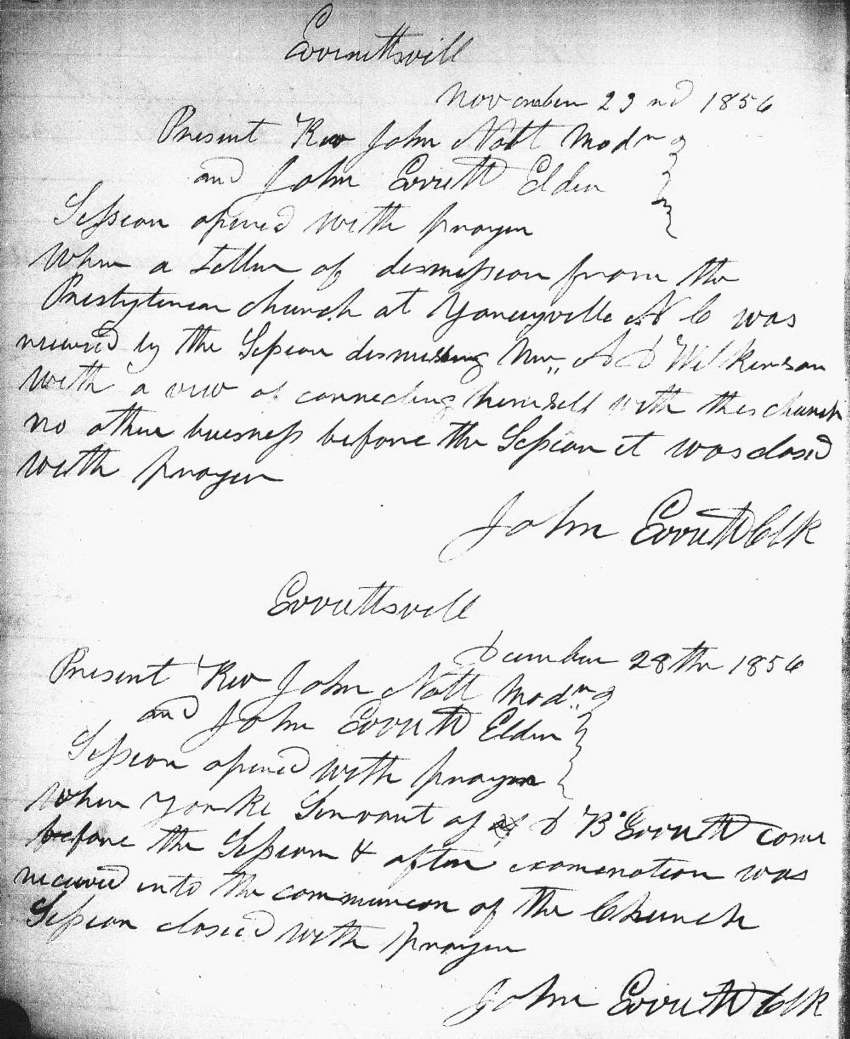 Everettsvill
November 23nd 1856
Present Rev John Nott Modr
and John Everett Elder
Session opened with prayer
When a Letter of dismission from the
Presbyterian church at Yanceyville N C was
received by the Session dismissing Mr A D Wilkinson
with a view of connecting himself with this church
no other buisness before the Session it was closed
with prayer
John Everett Clk
Everettsvill
December 28th 1856
Present Rev John Nott Modr
and John Everett Elder
Session opened with prayer
When Yorke Servant of D B Everett come
before the Session & after examenation was
received into the communion of the Church
Session closed with prayer
John Everett Clk